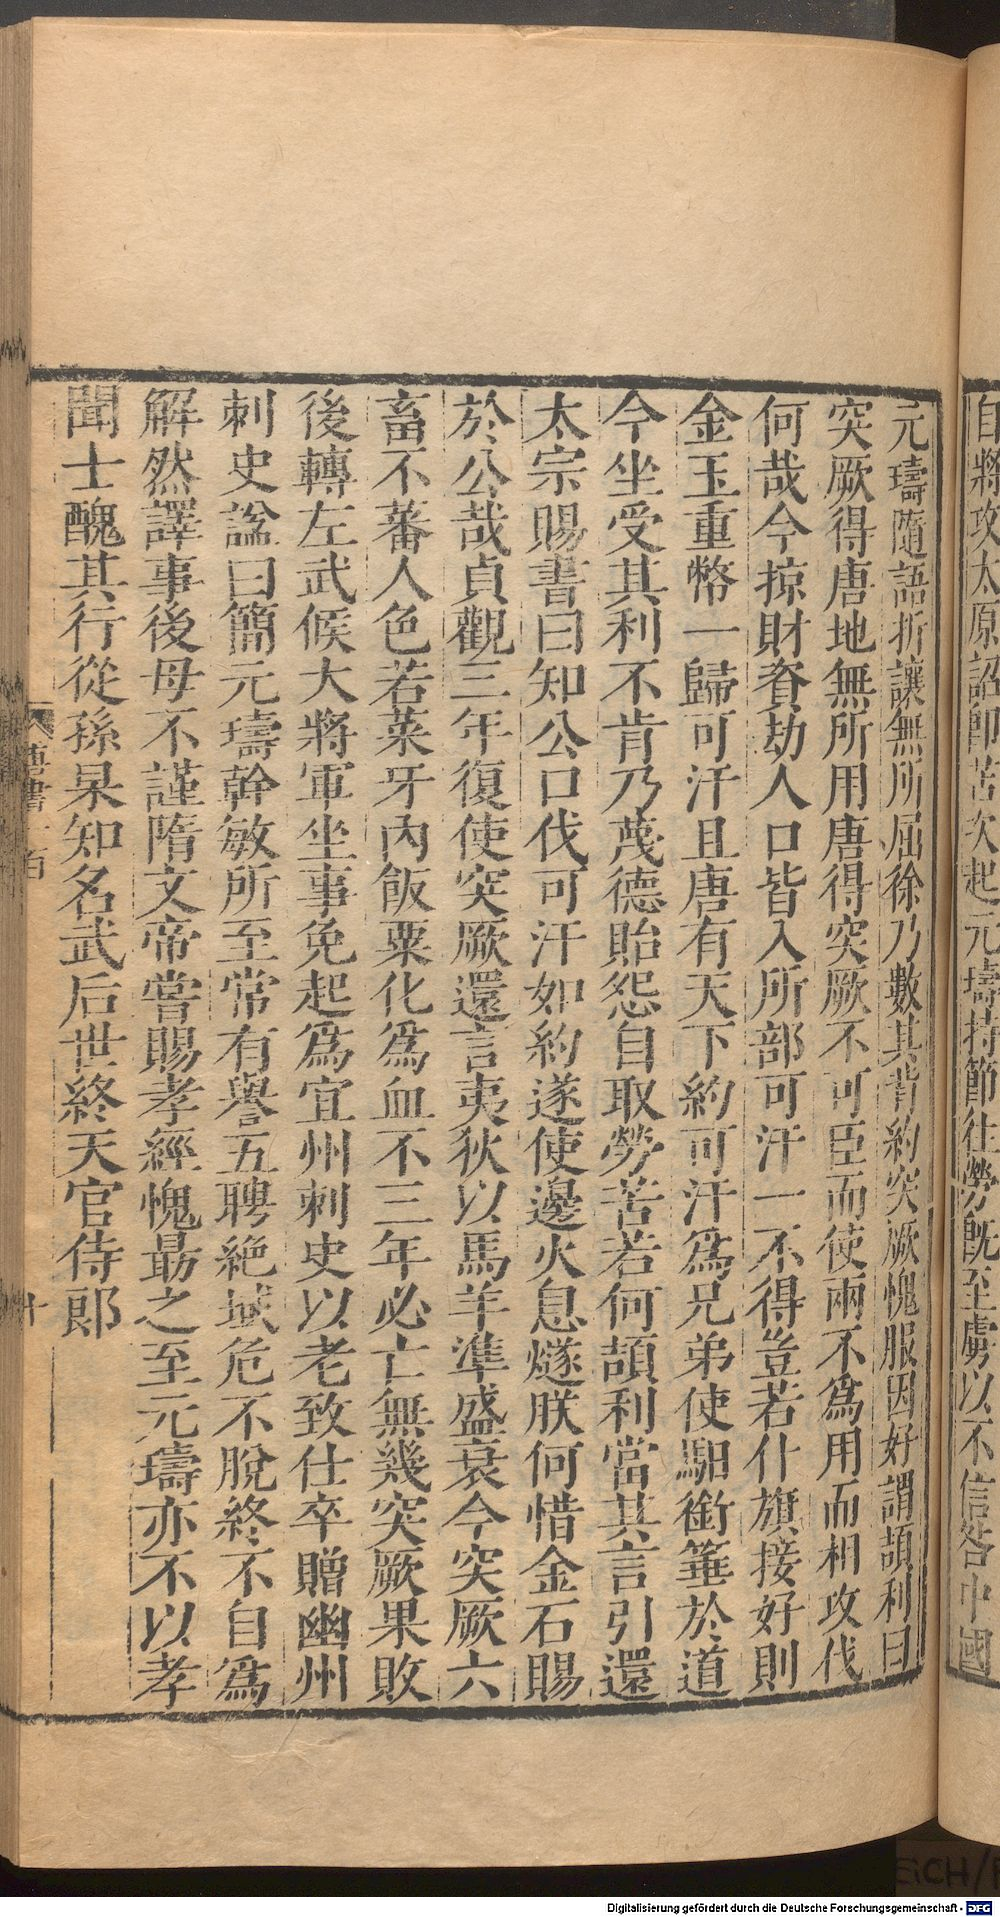 自將攻太原詔即苫次起元璹持節往勞既至虜以不信咎中國
元璹隨語折讓無所屈徐乃數其背約突厥愧服因好謂頡利曰
突厥得唐地無所用唐得突厥不可臣而使兩不為用而相攻伐
何哉今掠財資劫人口皆入所部可汗一不得豈若什旗接好則
金玉重幣一歸可汗且唐有天下約可汗為兄弟使馹銜箠於道
今坐受其利不肯乃蔑德貽怨自取勞苦若何頡利當其言引還
太宗賜書曰知公口伐可汗如約遂使邊火息燧朕何惜金石賜
於公哉貞觀三年復使突厥還言夷狄以馬羊準盛衰今突厥六
畜不蕃人色若菜牙內飯粟化為血不三年必亡無幾突厥果敗
後轉左武候大將軍坐事免起為宜州刺史以老致仕卒贈幽州
刺史謚曰簡元璹幹敏所至常有譽五聘絕域危不脫終不自為
解然譯事後母不謹隋文帝嘗賜孝經愧勗之至元璹亦不以孝
聞士醜其行從孫杲知名武后世終天官侍郎
唐書一百
十
Digitalisierung gefördert durch die Deutsche Forschungsgemeinschaft - DFG